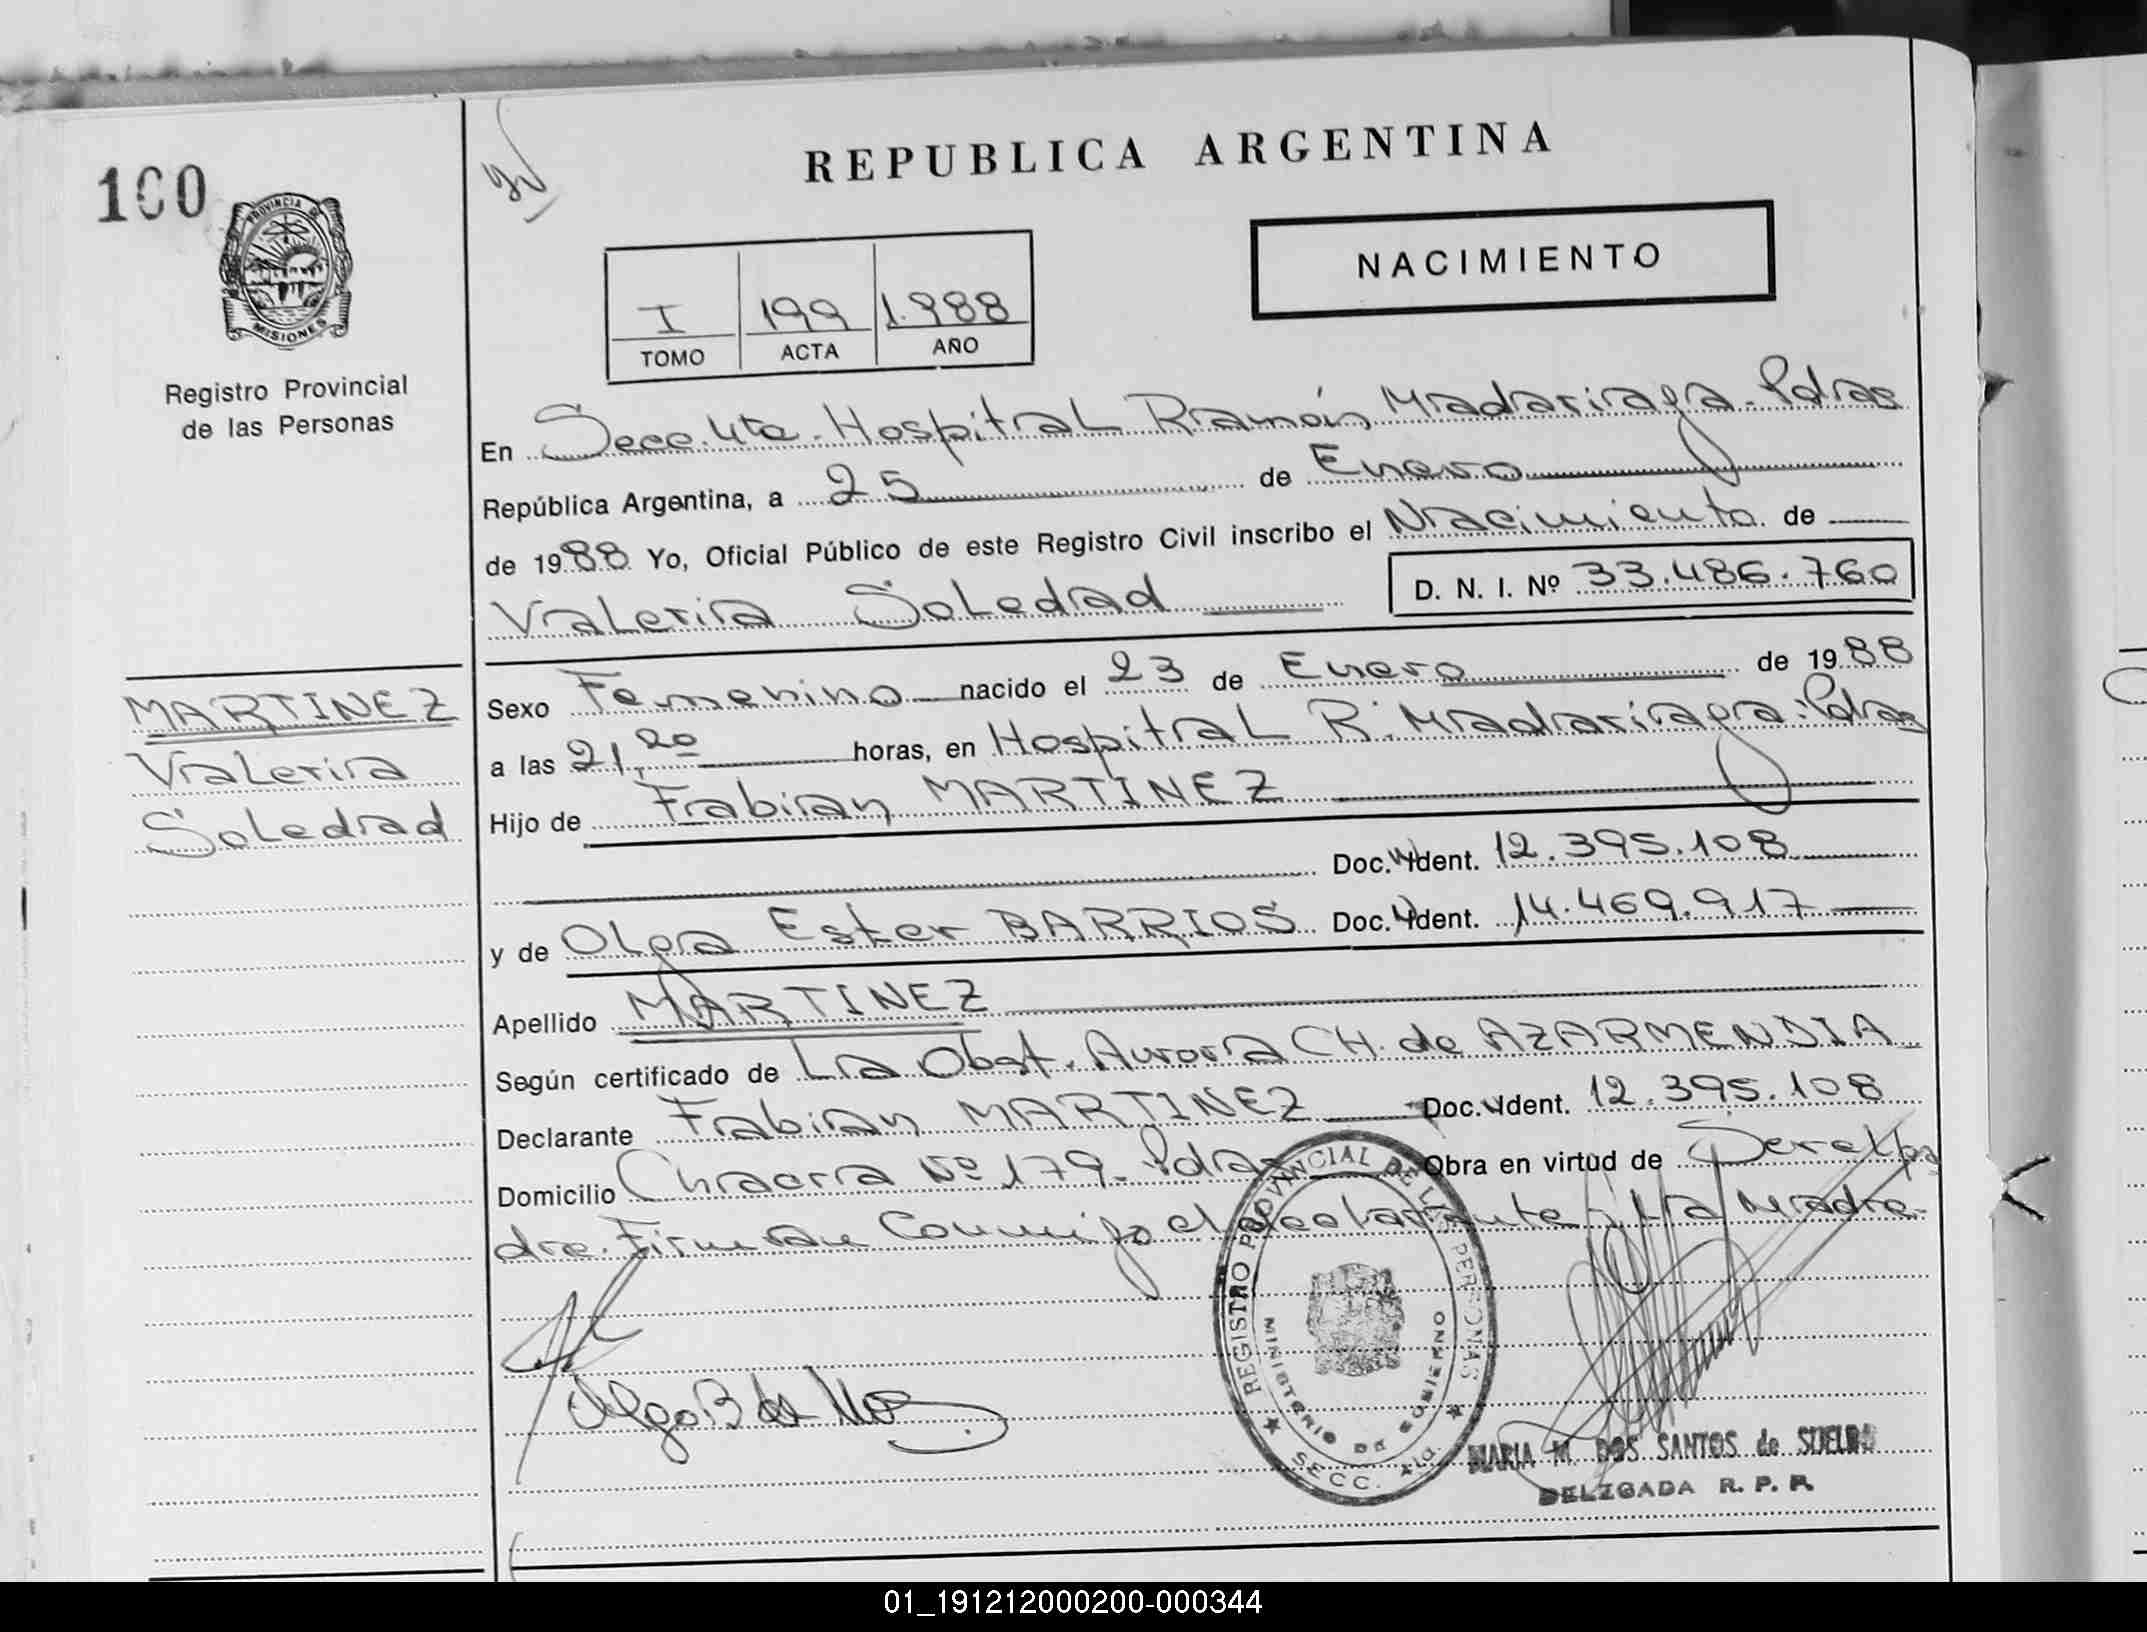 100
PROVINCIA DE
MISIONES
Registro Provincial
de las Personas
REPUBLICA ARGENTINA
NACIMIENTO
I 199 1.988
TOMO ACTA AÑO
En Secc. 4ta. Hospital Ramón Madariaga. Pdas
República Argentina, a 25 de Enero
de 1988 Yo, Oficial Público de este Registro Civil inscribo el Nacimiento de
Valeria Soledad D. N. I. Nº 33.486.760
MARTINEZ
Valeria
Soledad
Sexo Femenino nacido el 23 de Enero de 1988
a las 21,20 horas, en Hospital R. Madariaga. Pdas
Hijo de Fabian MARTINEZ
Doc. Ident. 12.395.108
y de Olga Ester BARRIOS Doc. Ident. 14.469.917
Apellido MARTINEZ
Según certificado de La Obst. Aurora CH. de AZARMENDIA
Declarante Fabian MARTINEZ Doc. Ident. 12.395.108
Domicilio Chacra Nº 179. Pdas Obra en virtud de Ser el pa
dre. Firman Conmigo el declarante y la Madre.
REGISTRO PROVINCIAL DE LAS PERSONAS
MINISTERIO DE GOBIERNO
SECC. 4ta.
Olga B de
MARIA M. DOS SANTOS de SUELDO
DELEGADA R. P. P.
01_191212000200-000344